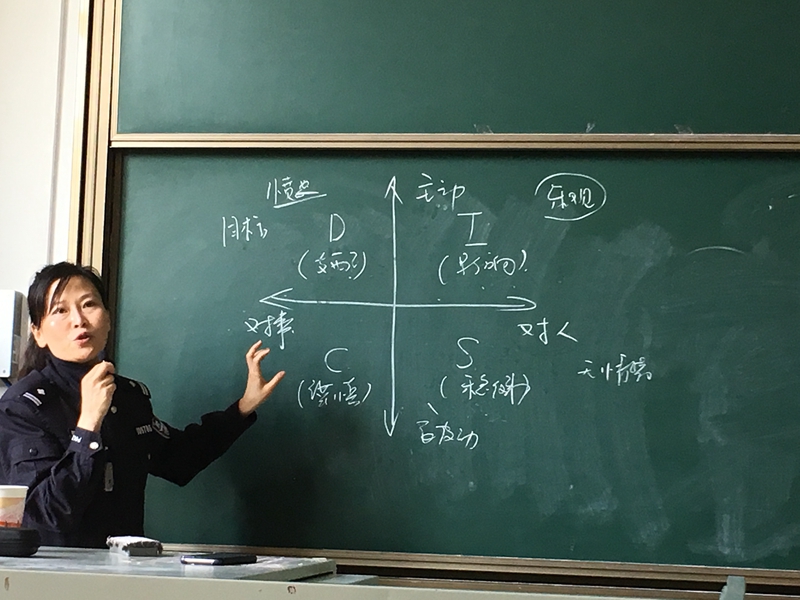 愤怒
主动
乐观
目标
D
I
(支配)
(影响)
对事
对人
C
S
(谨慎)
(稳健)
无情绪
被动